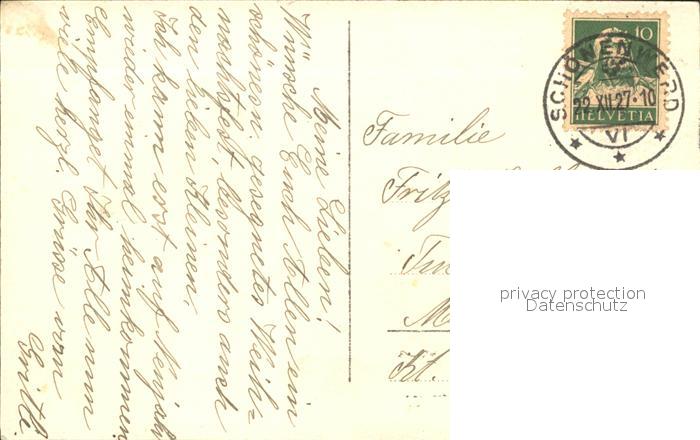 Meine Lieben!
Wünsche Euch Allen ein
schönen gesegnetes Weih=
nachtsfest, besonders auch
den lieben Kleinen.
Ich kann erst auf Neujahr
wieder einmal heimkommen.
Empfanget Ihr Alle nun
viele herzl. Grüsse von
Gritli.
Familie
Fritz
M
Kt.
10
HELVETIA
SCHÖNENWERD
22.XII.27-10
VI
privacy protection
Datenschutz